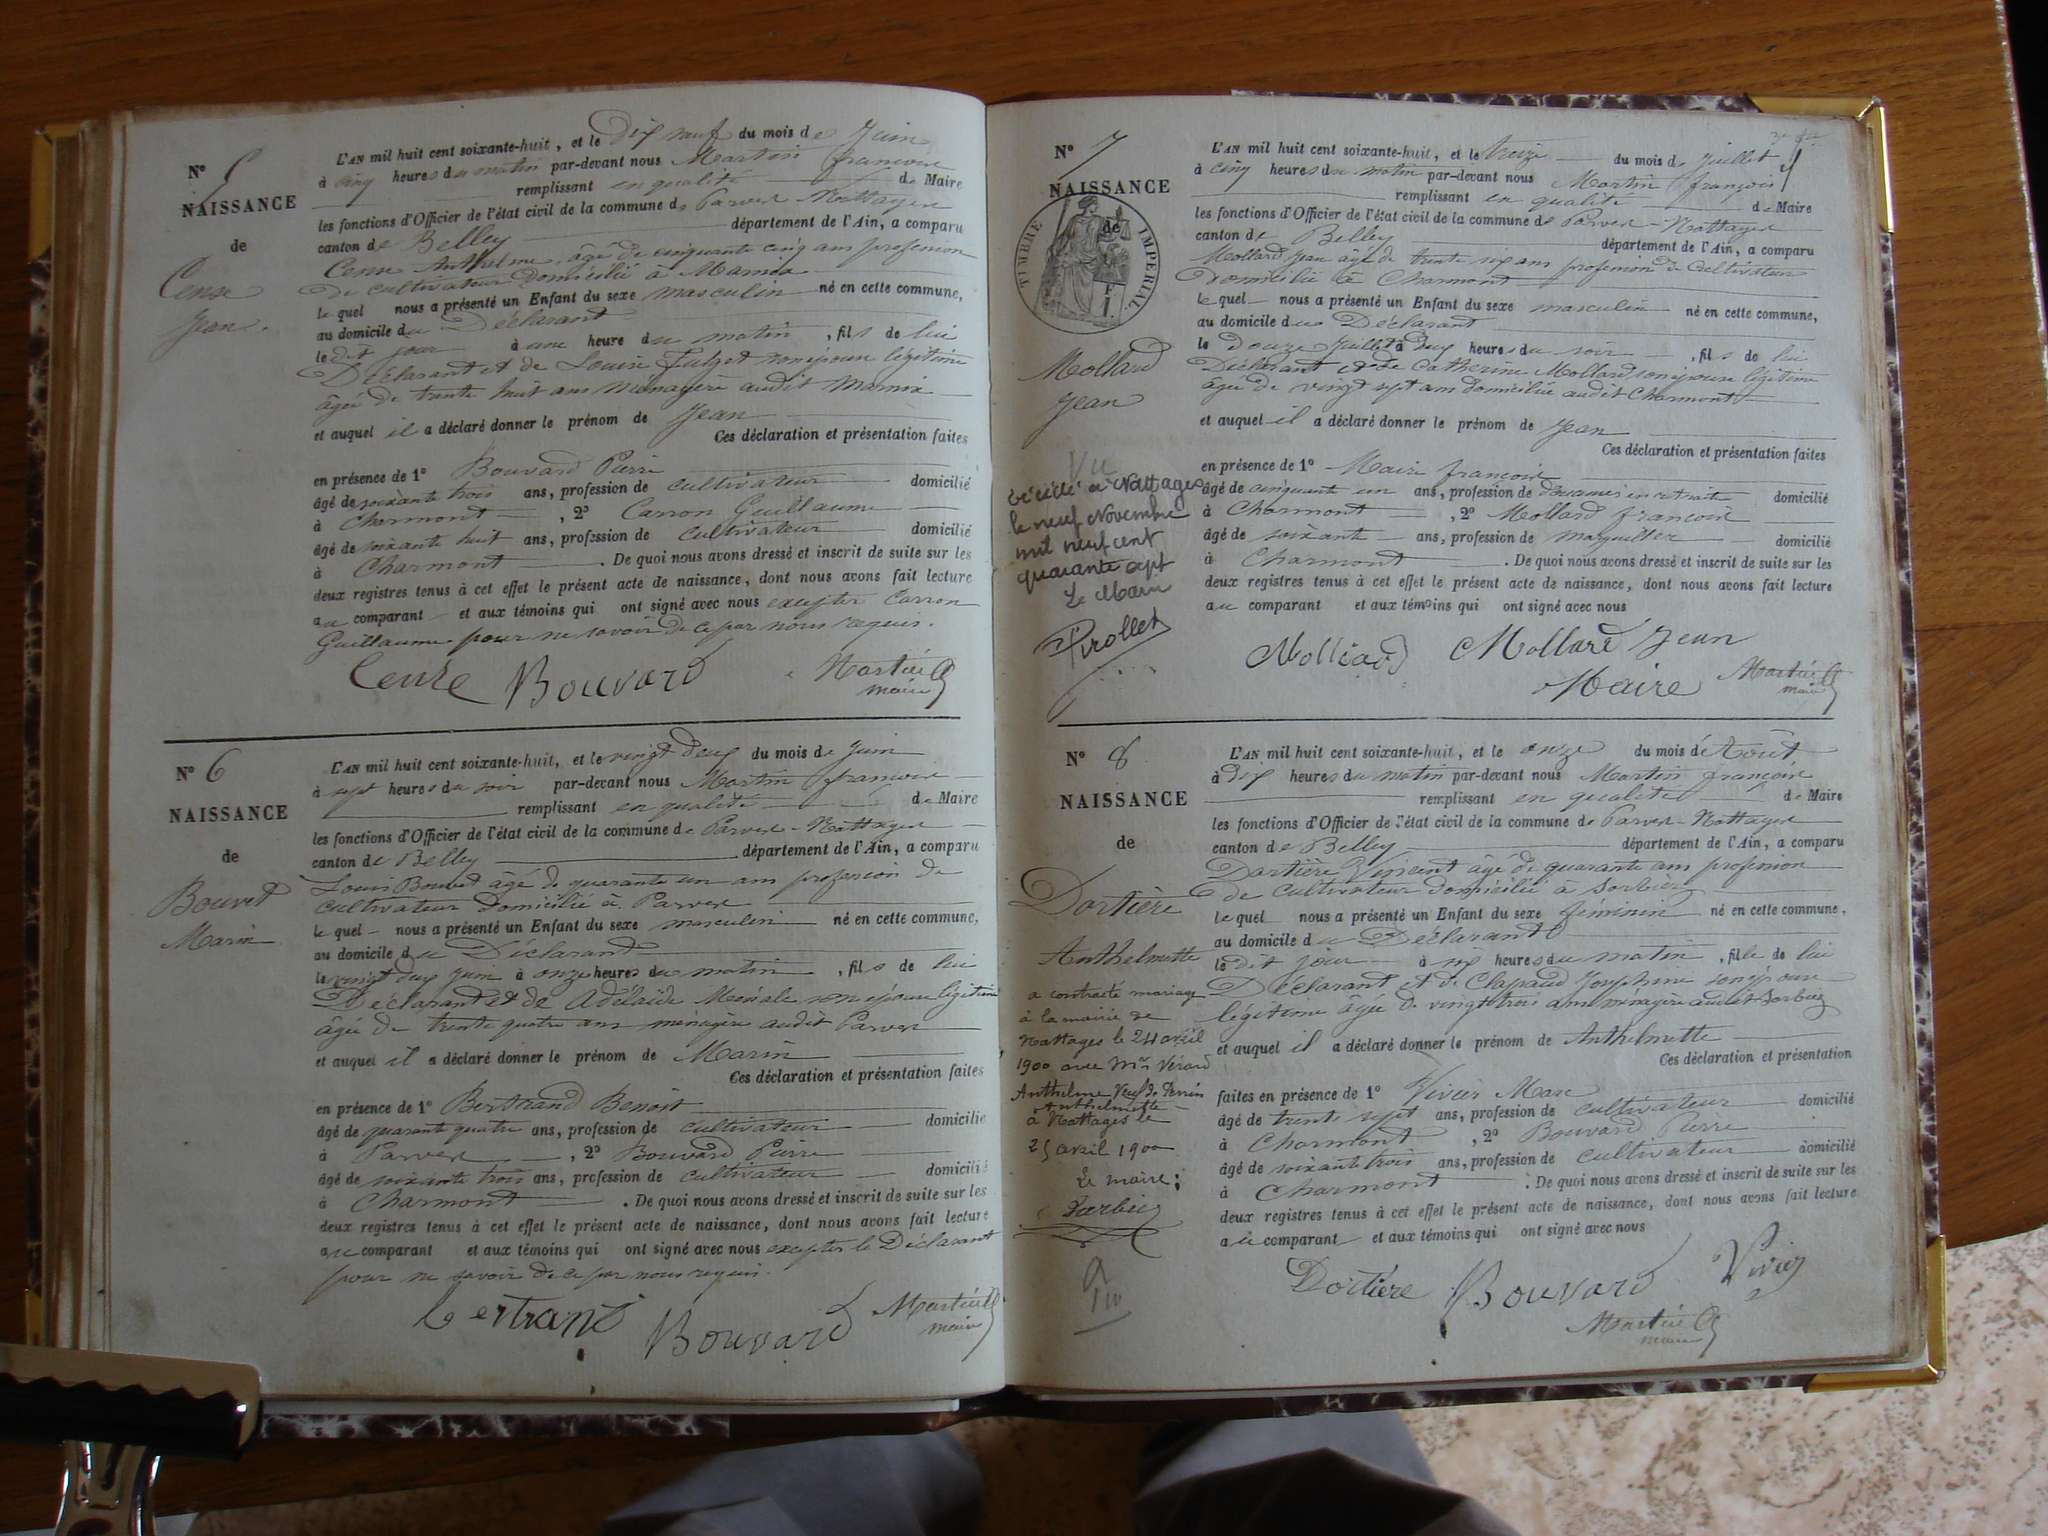 N° 5
NAISSANCE
de
Cense
Jean.
L'AN mil huit cent soixante-huit, et le Dix neuf du mois de Juin
à cinq heures du matin par-devant nous Martin françois
remplissant en qualité de Maire
les fonctions d'Officier de l'état civil de la commune de Parves Nattages
canton de Belley département de l'Ain, a comparu
Cense Anthelme, âgé de cinquante cinq ans profession
De cultivateur Domicilié à
le quel nous a présenté un Enfant du sexe masculin né en cette commune,
au domicile du Déclarant
le dit jour à une heure du matin, fils de lui
Déclarant et de Louise son épouse légitime
âgée de trente huit ans ménagère audit
et auquel il a déclaré donner le prénom de Jean
Ces déclaration et présentation faites
en présence de 1° Bouvard Pierre
âgé de soixante trois ans, profession de cultivateur domicilié
à Charmont, 2° Carron Guillaume
âgé de soixante huit ans, profession de cultivateur domicilié
à Charmont. De quoi nous avons dressé et inscrit de suite sur les
deux registres tenus à cet effet le présent acte de naissance, dont nous avons fait lecture
au comparant et aux témoins qui ont signé avec nous excepter Carron
Guillaume pour ne savoir de ce par nous requis.
Cense Bouvard Martin
maire
N° 6
NAISSANCE
de
Bouvet
Marin
L'AN mil huit cent soixante-huit, et le vingt Deux du mois de Juin
à sept heures du soir par-devant nous Martin françois
remplissant en qualité de Maire
les fonctions d'Officier de l'état civil de la commune de Parves-Nattages
canton de Belley département de l'Ain, a comparu
Louis Bouvet âgé de quarante un ans profession de
cultivateur Domicilié à Parves
le quel nous a présenté un Enfant du sexe masculin né en cette commune,
au domicile du Déclarant
le vingt deux juin à onze heures du matin, fils de lui
Déclarant et de Adélaïde son épouse légitime
âgée de trente quatre ans ménagère audit Parves
et auquel il a déclaré donner le prénom de Marin
Ces déclaration et présentation faites
en présence de 1° Bertrand Benoit
âgé de quarante quatre ans, profession de cultivateur domicilié
à Parves, 2° Bouvard Pierre
âgé de soixante trois ans, profession de cultivateur domicilié
à Charmont. De quoi nous avons dressé et inscrit de suite sur les
deux registres tenus à cet effet le présent acte de naissance, dont nous avons fait lecture
au comparant et aux témoins qui ont signé avec nous excepter le Déclarant
pour ne savoir de ce par nous requis.
Bertrand Bouvard Martin
maire
N° 7
NAISSANCE
de
TIMBRE IMPERIAL
Mollard
Jean
Vu
Décédé à Nattages
le neuf Novembre
mil neuf cent
quarante sept
Le Maire
Pirollet
L'AN mil huit cent soixante-huit, et le treize du mois de Juillet
à cinq heures du matin par-devant nous Martin françois
remplissant en qualité de Maire
les fonctions d'Officier de l'état civil de la commune de Parves-Nattages
canton de Belley département de l'Ain, a comparu
Mollard Jean âgé de trente six ans profession de Cultivateur
Domicilié à Charmont
le quel nous a présenté un Enfant du sexe masculin né en cette commune,
au domicile du Déclarant
le Douze Juillet à dix heures du soir, fils de lui
Déclarant et de Catherine Mollard son épouse légitime
âgée de vingt sept ans domiciliée audit Charmont
et auquel il a déclaré donner le prénom de Jean
Ces déclaration et présentation faites
en présence de 1° Maire françois
âgé de cinquante un ans, profession de Douanier en retraite domicilié
à Charmont, 2° Mollard françois
âgé de soixante ans, profession de domicilié
à Charmont. De quoi nous avons dressé et inscrit de suite sur les
deux registres tenus à cet effet le présent acte de naissance, dont nous avons fait lecture
au comparant et aux témoins qui ont signé avec nous
Mollard Mollard Jean
Maire Martin
maire
N° 8
NAISSANCE
de
Dortière
Anthelmette
a contracté mariage
à la mairie de
Nattages le 24 avril
1900 avec Mr Vérard
Anthelme Veuf de Perrin
Anthelmette
à Nattages le
25 avril 1900
Le maire:
L'AN mil huit cent soixante-huit, et le onze du mois d'Août
à dix heures du matin par-devant nous Martin françois
remplissant en qualité de Maire
les fonctions d'Officier de l'état civil de la commune de Parves-Nattages
canton de Belley département de l'Ain, a comparu
Dortière Vincent âgé de quarante ans profession
de cultivateur domicilié à Sorbiez
le quel nous a présenté un Enfant du sexe féminin né en cette commune,
au domicile du Déclarant
le dit jour à six heures du matin, fille de lui
Déclarant et de Clapaud Josephine son épouse
légitime âgée de vingt trois ans ménagère audit Sorbiez
et auquel il a déclaré donner le prénom de Anthelmette
Ces déclaration et présentation
faites en présence de 1° Vivier Marc
âgé de trente sept ans, profession de cultivateur domicilié
à Charmont, 2° Bouvard Pierre
âgé de soixante trois ans, profession de cultivateur domicilié
à Charmont. De quoi nous avons dressé et inscrit de suite sur les
deux registres tenus à cet effet le présent acte de naissance, dont nous avons fait lecture
au comparant et aux témoins qui ont signé avec nous
Dortière Bouvard Vivier
Martin
maire